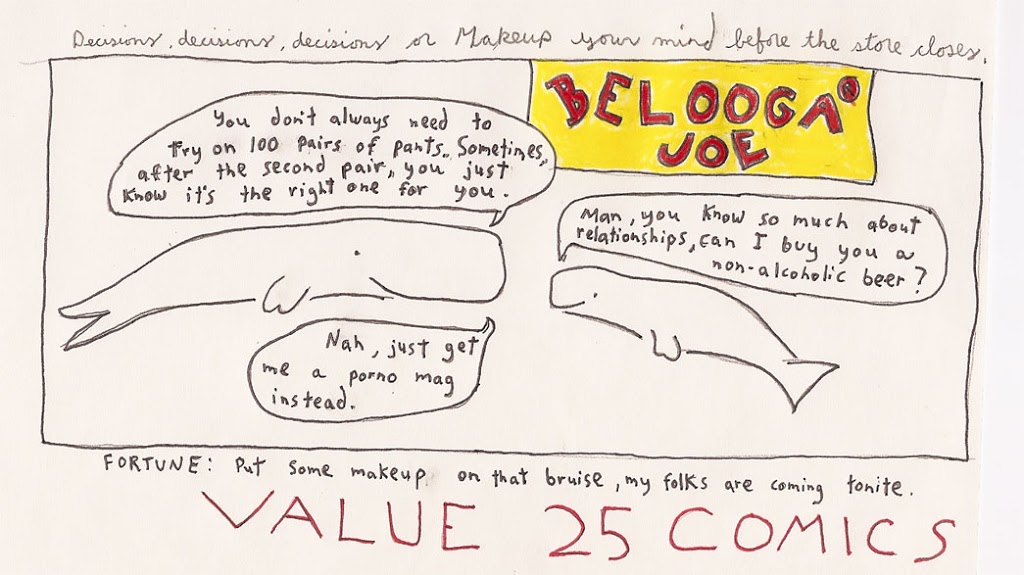 Decisions, decisions, decisions or Makeup your mind before the store closes.
BELOOGA
JOE
You don't always need to
try on 100 pairs of pants. Sometimes,
after the second pair, you just
know it's the right one for you.
Man, you know so much about
relationships, can I buy you a
non-alcoholic beer?
Nah, just get
me a porno mag
instead.
FORTUNE: Put some makeup on that bruise, my folks are coming tonite.
VALUE 25 COMICS